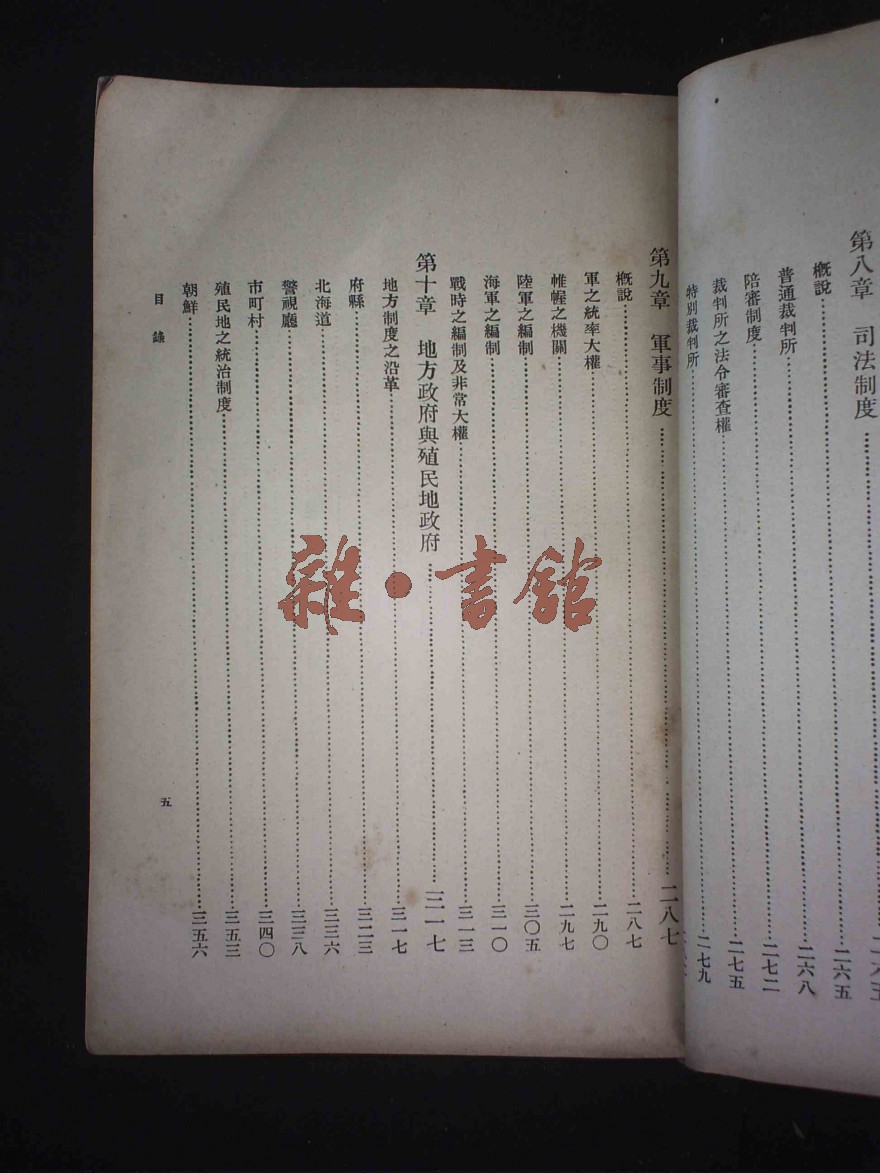 第八章　司法制度……二六五
概說……二六五
普通裁判所……二六八
陪審制度……二七二
裁判所之法令審查權……二七五
特別裁判所……二七九
第九章　軍事制度……二八七
概說……二八七
軍之統率大權……二九〇
帷幄之機關……二九七
陸軍之編制……三〇五
海軍之編制……三一〇
戰時之編制及非常大權……三一三
第十章　地方政府與殖民地政府……三一七
地方制度之沿革……三一七
府縣……三二三
北海道……三三六
警視廳……三三八
市町村……三四〇
殖民地之統治制度……三五三
朝鮮……三五六
目錄
五
雜·書館